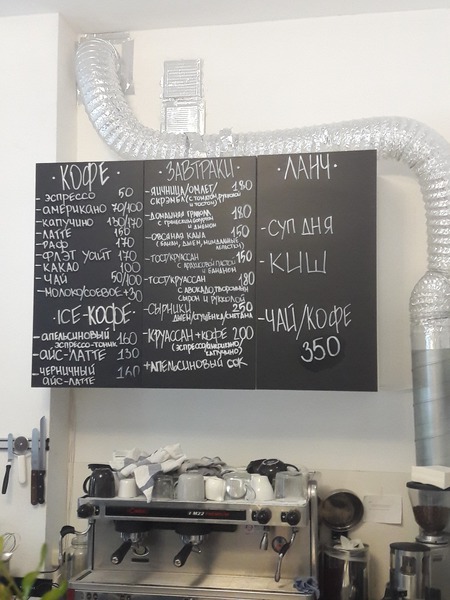 · КОФЕ ·
- ЭСПРЕССО 50
- АМЕРИКАНО 70/100
- КАПУЧИНО 130/170
- ЛАТТЕ 150
- РАФ 170
- ФЛЭТ УАЙТ 170
- КАКАО 100
- ЧАЙ 50/100
- МОЛОКО/СОЕВОЕ +30
· ICE-КОФЕ ·
- АПЕЛЬСИНОВЫЙ 160
ЭСПРЕССО-ТОНИК
- АЙС-ЛАТТЕ 130
- ЧЕРНИЧНЫЙ 160
АЙС-ЛАТТЕ
· ЗАВТРАКИ ·
- ЯИЧНИЦА/ОМЛЕТ/ 180
СКРЭМБЛ (С ТОМАТОМ, РУККОЛОЙ
И ТОСТОМ)
- ДОМАШНЯЯ ГРАНОЛА 180
С ГРЕЧЕСКИМ ЙОГУРТОМ
И ДЖЕМОМ
- ОВСЯНАЯ КАША 150
(БАНАН, ДЖЕМ, МИНДАЛЬНЫЕ
ЛЕПЕСТКИ)
- ТОСТ/КРУАССАН 150
С АРАХИСОВОЙ ПАСТОЙ
И БАНАНОМ
- ТОСТ/КРУАССАН 180
С АВОКАДО, ТВОРОЖНЫМ
СЫРОМ И РУККОЛОЙ
- СЫРНИКИ 250
ДЖЕМ/СГУЩЁНКА/СМЕТАНА
- КРУАССАН + КОФЕ 200
(ЭСПРЕССО/АМЕРИКАНО/
КАПУЧИНО)
+ АПЕЛЬСИНОВЫЙ СОК
· ЛАНЧ ·
- СУП ДНЯ
- КИШ
- ЧАЙ/КОФЕ
350
M22